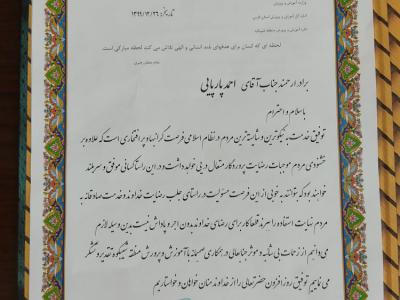 وزارت آموزش و پرورش
اداره کل آموزش و پرورش استان فارس
تاریخ: ۱۳۹۹/۱۳/۲۶
لحظه ای که انسان برای هدفهای بلند انسانی و الهی تلاش می کند لحظه مبارکی است.
مقام معظم رهبری
برادر ارجمند جناب آقای احمد پارپایی
باسلام و احترام
توفیق خدمت به نیکوترین و شایسته ترین مردم در نظام اسلامی فرصت گرانبها و پرافتخاری است که علاوه بر
خشنودی مردم موجبات رضایت پروردگار متعال در پی خواهد داشت و در این راستا کسانی موفق و سربلند
خواهند بود که بتوانند به خوبی از این فرصت مسئولیت در راستای جلب رضایت خداوند و خدمت صادقانه به
مردم نهایت استفاده را ببرند قطعا کار برای رضای خداوند بدون اجر و پاداش نیست بدین وسیله لازم
می دانیم از زحمات بی شائبه و موثر جنابعالی در همکاری صمیمانه با آموزش و پرورش منطقه شیبکوه تقدیر و تشکر
می نماییم توفیق روز افزون حضرتعالی را از خداوند منان خواهان و خواستاریم